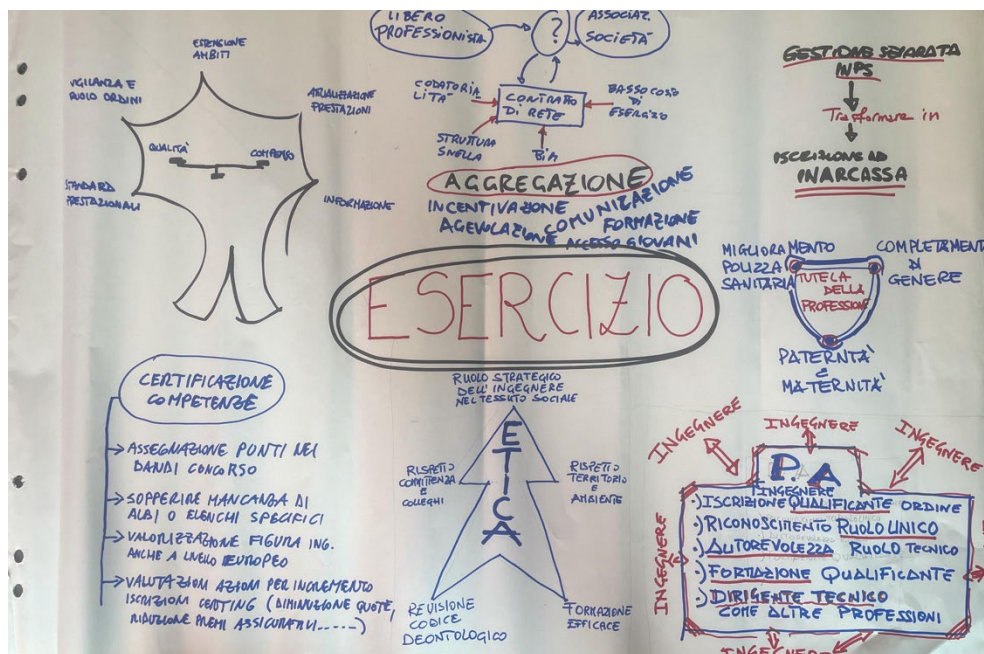 ESTENSIONE
AMBITI
VIGILANZA E
RUOLO ORDINI
ATTUALIZZAZIONE
PRESTAZIONI
QUALITÀ
COMPENSO
STANDARD
PRESTAZIONALI
INFORMAZIONE
LIBERO
PROFESSIONISTA
?
ASSOCIAZ.
SOCIETÀ
CODATORIA
LITÀ
CONTRATTO
DI RETE
BASSO COSTO
DI
ESERCIZIO
STRUTTURA
SNELLA
BIM
AGGREGAZIONE
INCENTIVAZIONE
COMUNICAZIONE
AGEVOLAZIONE
FORMAZIONE
ACCESSO GIOVANI
GESTIONE SEPARATA
INPS
Trasformare in
ISCRIZIONE AD
INARCASSA
ESERCIZIO
MIGLIORAMENTO
POLIZZA
SANITARIA
COMPLETAMENT
DI
GENERE
TUTELA
DELLA
PROFESSIONE
PATERNITÀ
E
MATERNITÀ
CERTIFICAZIONE
COMPETENZE
→ ASSEGNAZIONE PUNTI NEI
BANDI CONCORSO
→ SOPPERIRE MANCANZA DI
ALBI O ELENCHI SPECIFICI
→ VALORIZZAZIONE FIGURA ING.
ANCHE A LIVELLO EUROPEO
→ VALUTAZIONI AZIONI PER INCREMENTO
ISCRIZIONI CERTING (DIMINUZIONE QUOTE,
RIDUZIONE PREMI ASSICURATIVI......)
RUOLO STRATEGICO
DELL'INGEGNERE
NEL TESSUTO SOCIALE
ETICA
RISPETTO
COMMITTENZA
E
COLLEGHI
RISPETTO
TERRITORIO
E
AMBIENTE
REVISIONE
CODICE
DEONTOLOGICO
FORMAZIONE
EFFICACE
INGEGNERE
INGEGNERE
INGEGNERE
P.A
INGEGNERE
·) ISCRIZIONE QUALIFICANTE ORDINE
·) RICONOSCIMENTO RUOLO UNICO
·) AUTOREVOLEZZA RUOLO TECNICO
·) FORMAZIONE QUALIFICANTE
·) DIRIGENTE TECNICO
COME ALTRE PROFESSIONI
INGEGNERE
INGEGNERE